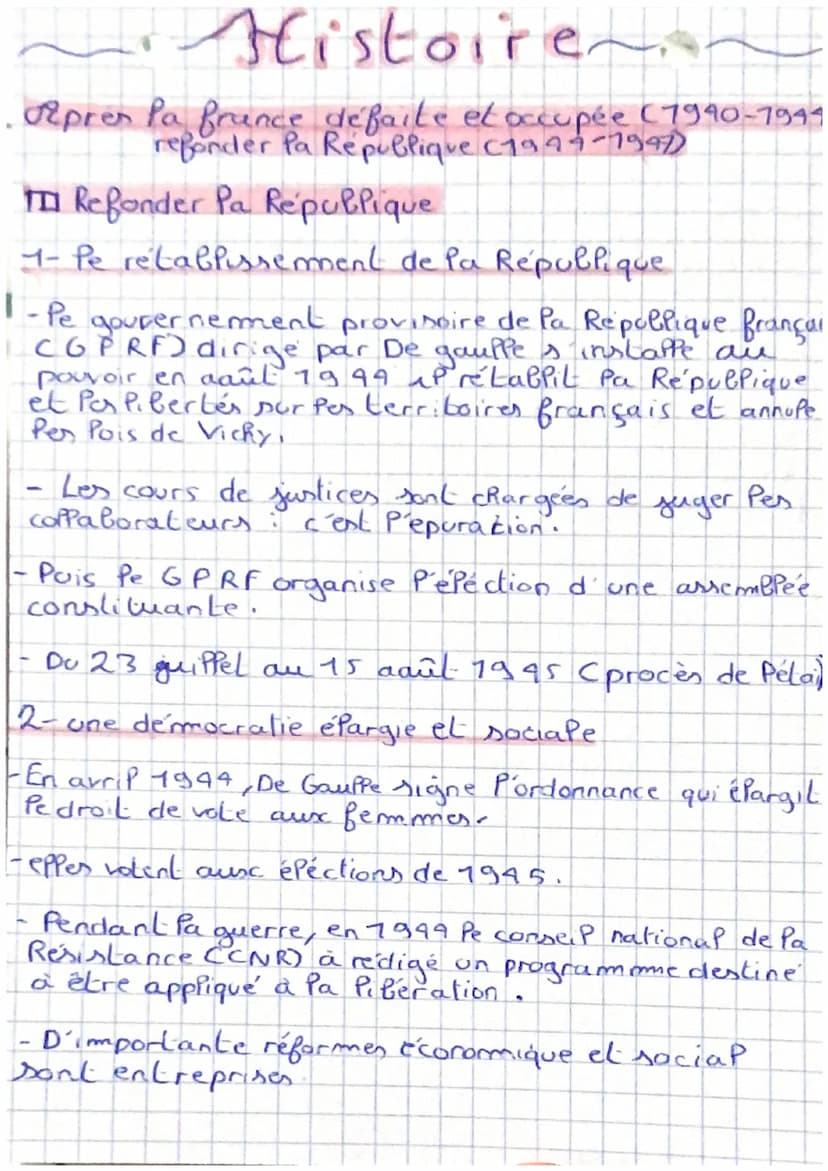 Histoire
Après la france défaite et occupée (1940-1944
refonder la République (1944-1947)
III Refonder la République
1- le rétablissement de la République
- le gouvernement provisoire de la République françai
(GPRF) dirigé par De gaulle s'installe au
pouvoir en août 1944 il rétablit la République
et les libertés sur les territoires français et annule
les lois de Vichy.
- Les cours de justices sont chargées de juger les
collaborateurs : c'est l'épuration.
- Puis le GPRF organise l'éléction d'une assemblée
constituante.
- Du 23 juillet au 15 août 1945 (procès de Pétai
2- une démocratie élargie et sociale
- En avril 1944, De Gaulle signe l'ordonnance qui élargit
le droit de vote aux femmes.
- elles votent aux éléctions de 1945.
- Pendant la guerre, en 1944 le conseil national de la
Résistance (CNR) à rédigé un programme destiné
à être appliqué à la libération.
- D'importante réformes économique et social
sont entreprises